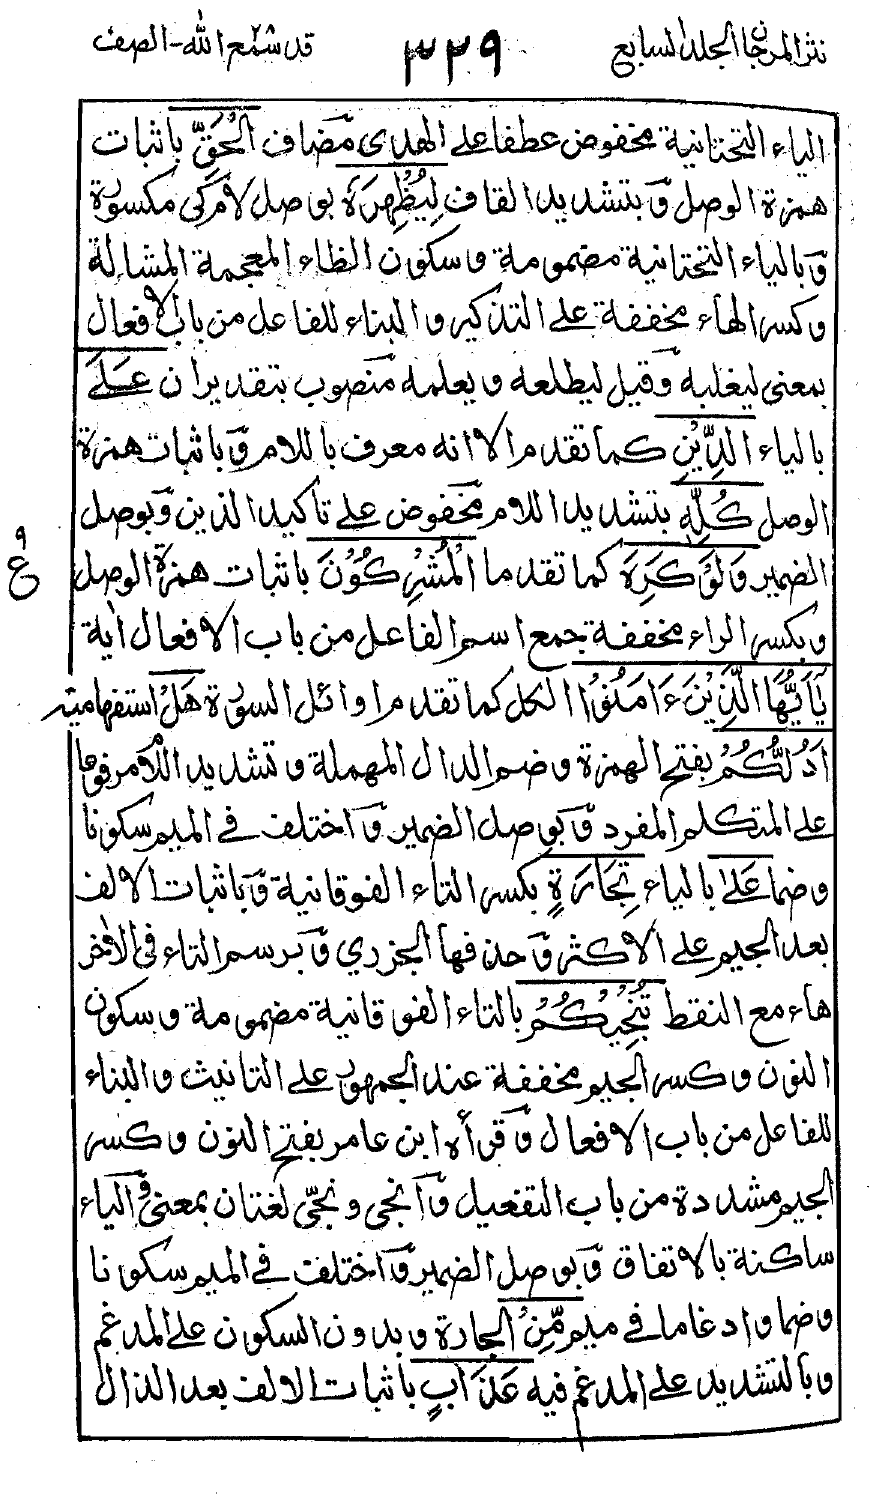 نثر المرجان الجلد السابع
٣٢٩
قد سمع الله ٢٨ - الصف
الياء التحتانية مخفوض عطفا على الهدى مضاف الْحَقِّ باثبات
همزة الوصل وبتشديد القاف لِيُظْهِرَهُ بوصل لام كى مكسورة
وبالياء التحتانية مضمومة وسكون الظاء المعجمة المشالة
وكسر الهاء مخففة على التذكير والبناء للفاعل من باب الافعال
بمعنى ليغلبه وقيل ليطلعه ويعلمه منصوب بتقدير ان عَلَى
بالياء الدِّيْنِ كما تقدم الا انه معرف باللام وباثبات همزة
الوصل كُلِّهِ بتشديد اللام مخفوض على تاكيد الدين وبوصل
الضمير وَلَوْ كَرِهَ كما تقدما الْمُشْرِكُوْنَ باثبات همزة الوصل
وبكسر الراء مخففة جمع اسم الفاعل من باب الافعال اية
يٰٓاَيُّهَا الَّذِيْنَ ءَامَنُوْا الكل كما تقدم اوائل السورة هَلْ استفهامية
اَدُلُّكُمْ بفتح الهمزة وضم الدال المهملة وتشديد اللام مرفوعا
على المتكلم المفرد وبوصل الضمير واختلف فى الميم سكونا
وضما عَلٰى بالياء تِجَارَةٍ بكسر التاء الفوقانية وباثبات الالف
بعد الجيم على الاكثر وحذفها الجزري وبرسم التاء فى الاٰخر
هاء مع النقط تُنْجِيْكُمْ بالتاء الفوقانية مضمومة وسكون
النون وكسر الجيم مخففة عند الجمهور على التانيث والبناء
للفاعل من باب الافعال وقرأه ابن عامر بفتح النون وكسر
الجيم مشددة من باب التفعيل وانجى ونجّى لغتان بمعنى والياء
ساكنة بالاتفاق وبوصل الضمير واختلف فى الميم سكونا
وضما وادغاما فى ميم مِّنْ الجارة وبدون السكون على المدغم
وبالتشديد على المدغم فيه عَذَابٍ باثبات الالف بعد الذال
٩
ع